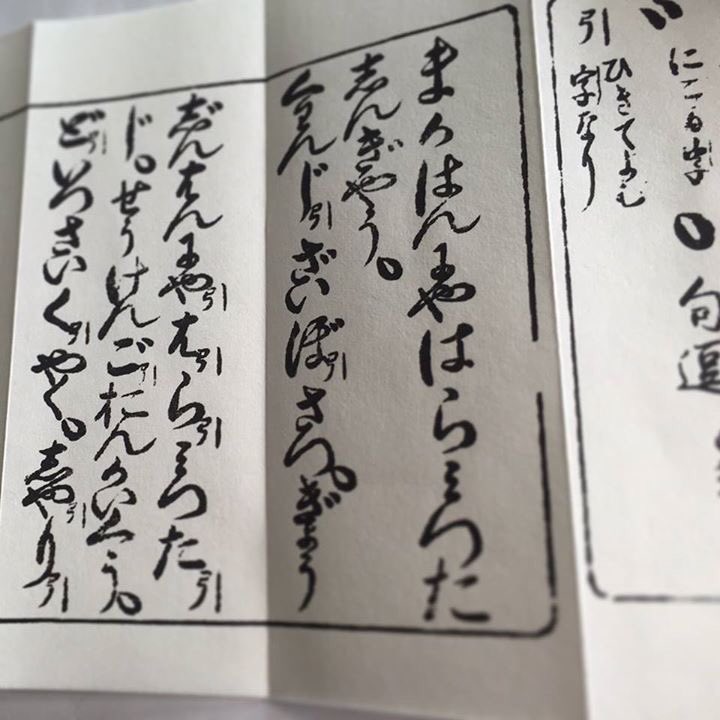 句逗
引 ひきてよむ
字なり
まかはんにやはらみつた
しんぎやう。
くわんじ引ざいぼ引さつ。ぎやう
じんはんにや引は引ら引みつた引
じ。せうけんご引おんかいくう。
ど引いつさいく引やく。しや引り引